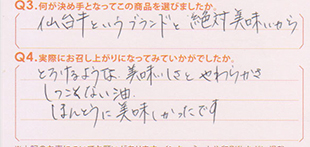 Q3.何が決め手となってこの商品を選びましたか。
仙台牛というブランドと絶対美味いから
Q4.実際にお召し上がりになってみていかがでしたか。
とろけるような、美味しさとやわらかさ
しつこくない油、
ほんとうに美味しかったです